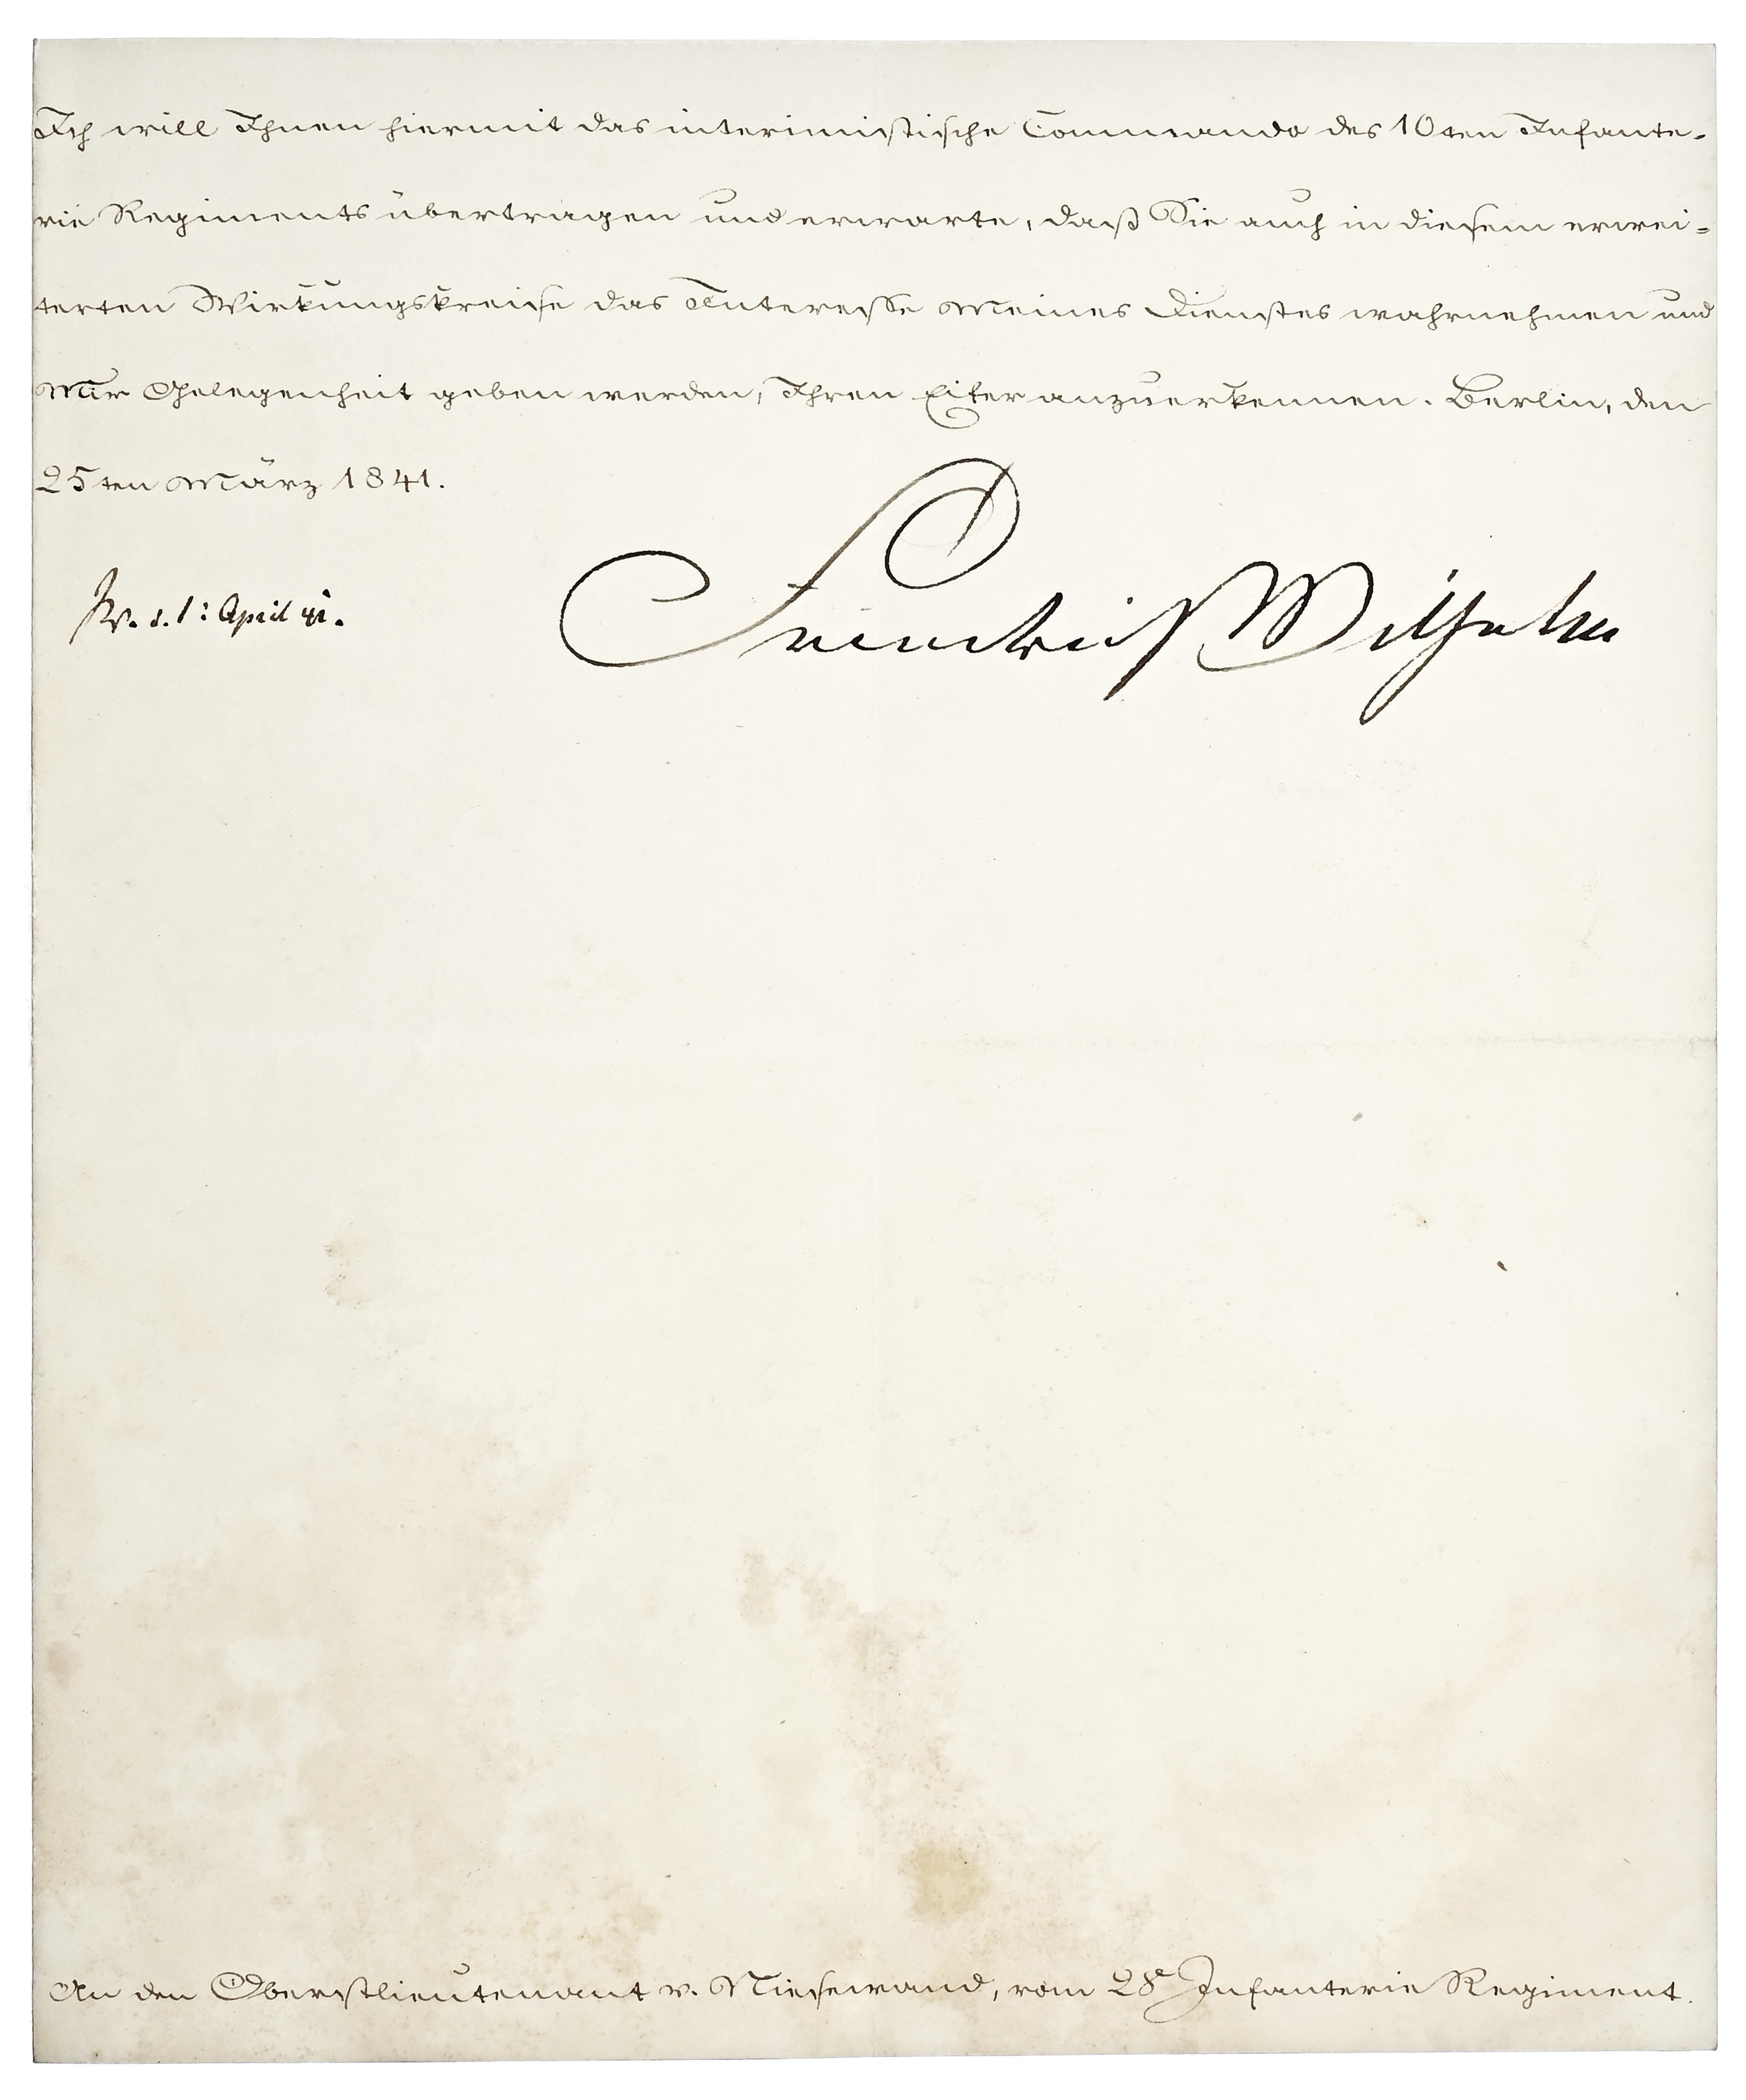 Ich will Ihnen hiermit das interimistische Commando des 10ten Infante-
rie Regiments übertragen und erwarte, daß Sie auch in diesem erwei-
terten Wirkungskreise das Interesse Meines Dienstes wahrnehmen und
Mir Gelegenheit geben werden, Ihren Eifer anzuerkennen. Berlin, den
25ten März 1841.
Friedrich Wilhelm
d. 1: April 41.
An den Oberstlieutenant v. Niesewand, vom 28e Infanterie Regiment.